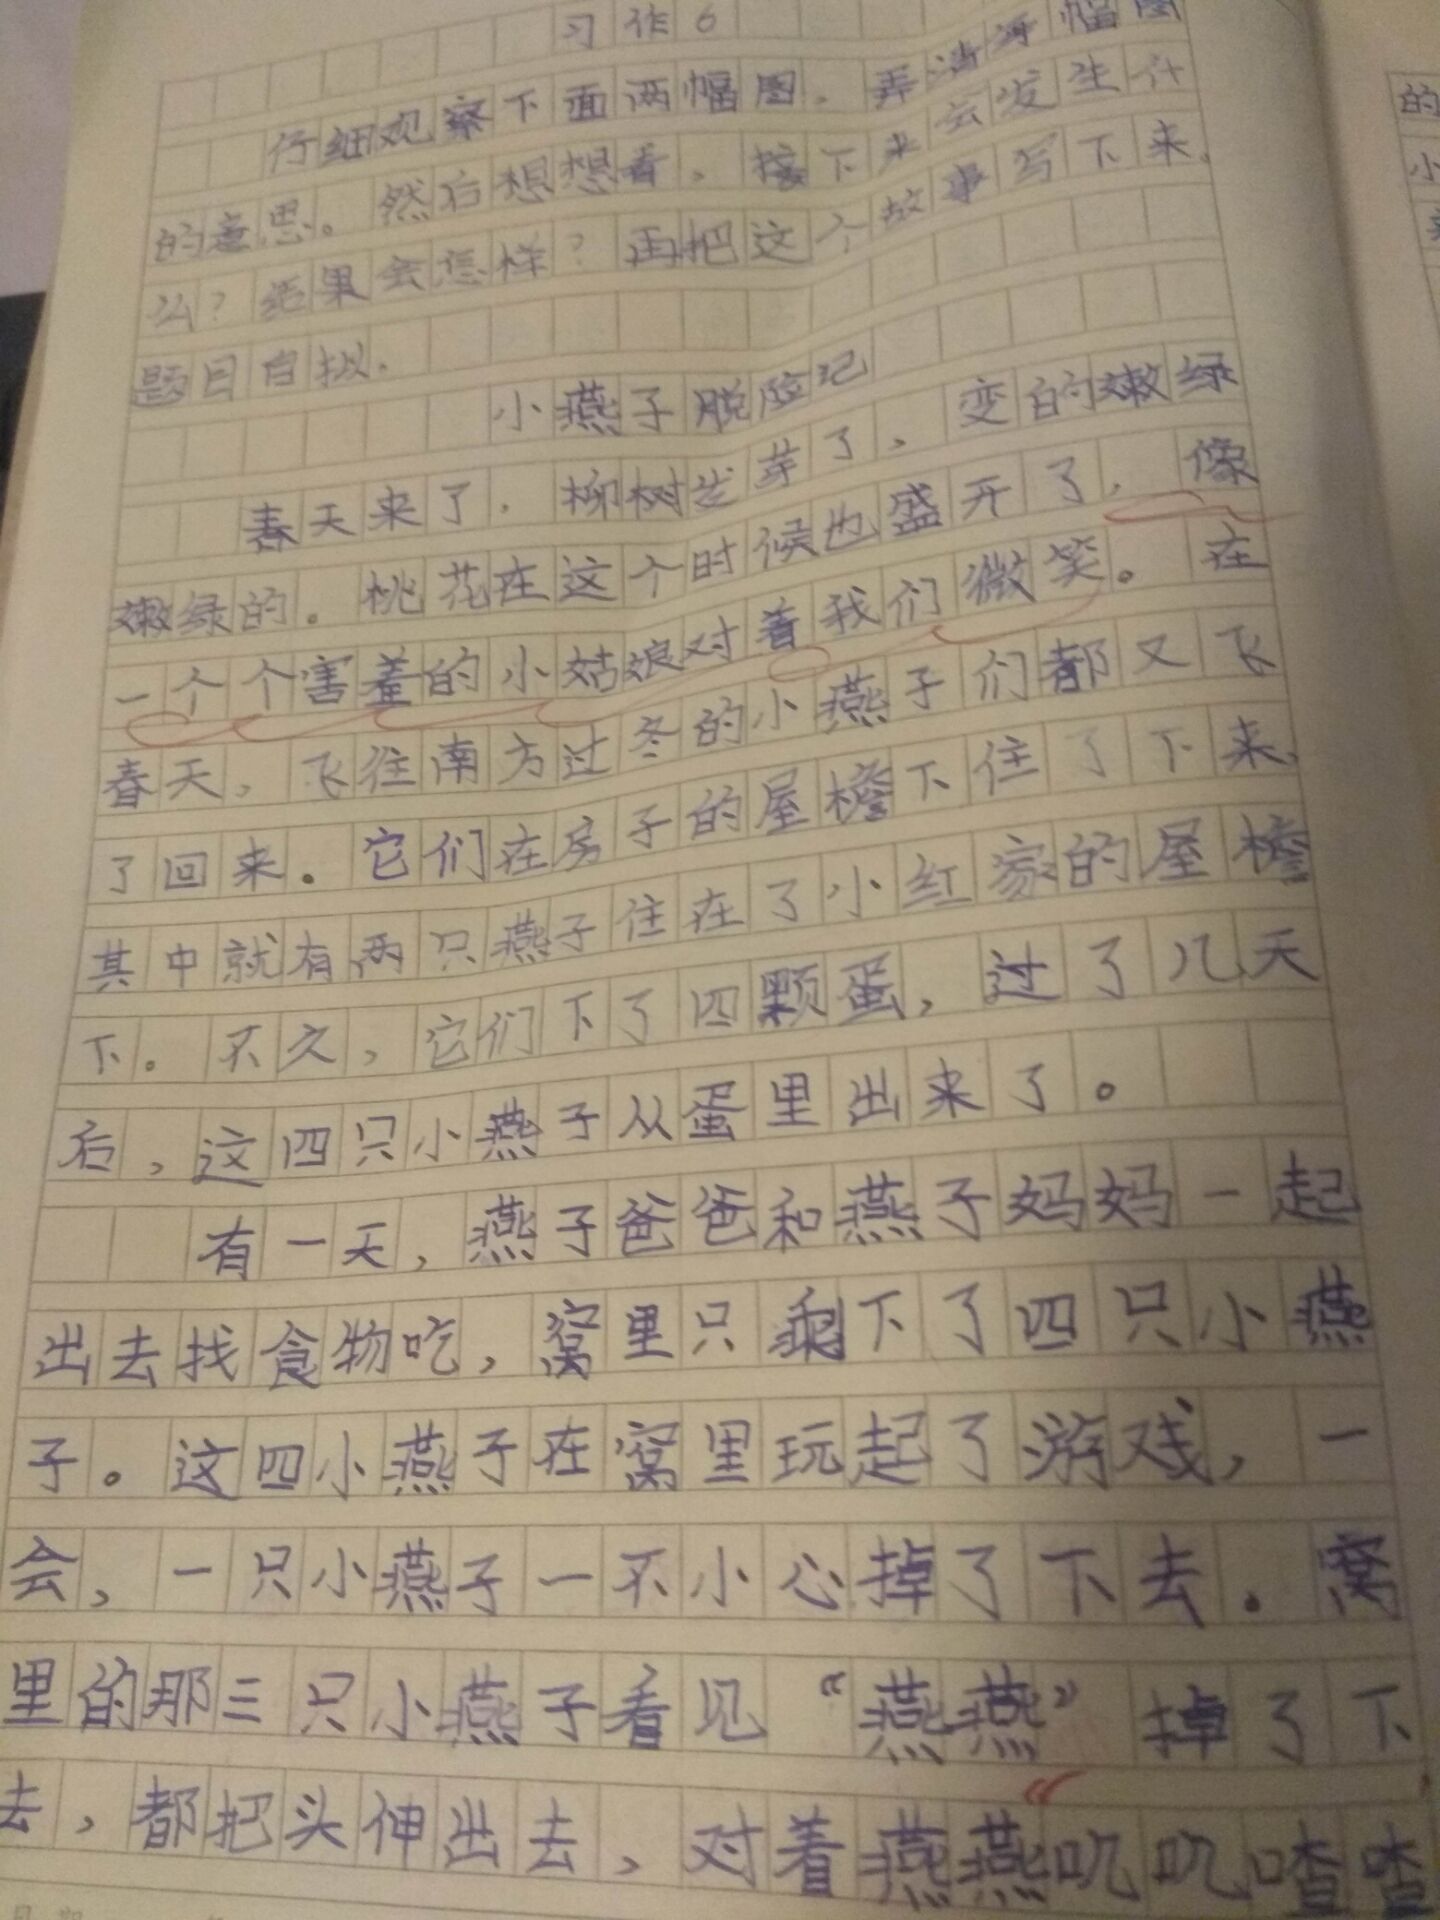 习作6
仔细观察下面两幅图，弄清每幅图
的意思。然后想想看，接下来会发生什
么？结果会怎样？再把这个故事写下来。
题目自拟。
小燕子脱险记
春天来了，柳树发芽了，变的嫩绿
嫩绿的。桃花在这个时候也盛开了，像
一个个害羞的小姑娘对着我们微笑。在
春天，飞往南方过冬的小燕子们都又飞
了回来。它们在房子的屋檐下住了下来，
其中就有两只燕子住在了小红家的屋檐
下。不久，它们下了四颗蛋，过了几天
后，这四只小燕子从蛋里出来了。
有一天，燕子爸爸和燕子妈妈一起
出去找食物吃，窝里只剩下了四只小燕
子。这四小燕子在窝里玩起了游戏，一
会，一只小燕子一不小心掉了下去。窝
里的那三只小燕子看见“燕燕”掉了下
去，都把头伸出去，对着燕燕叽叽喳喳
的
小